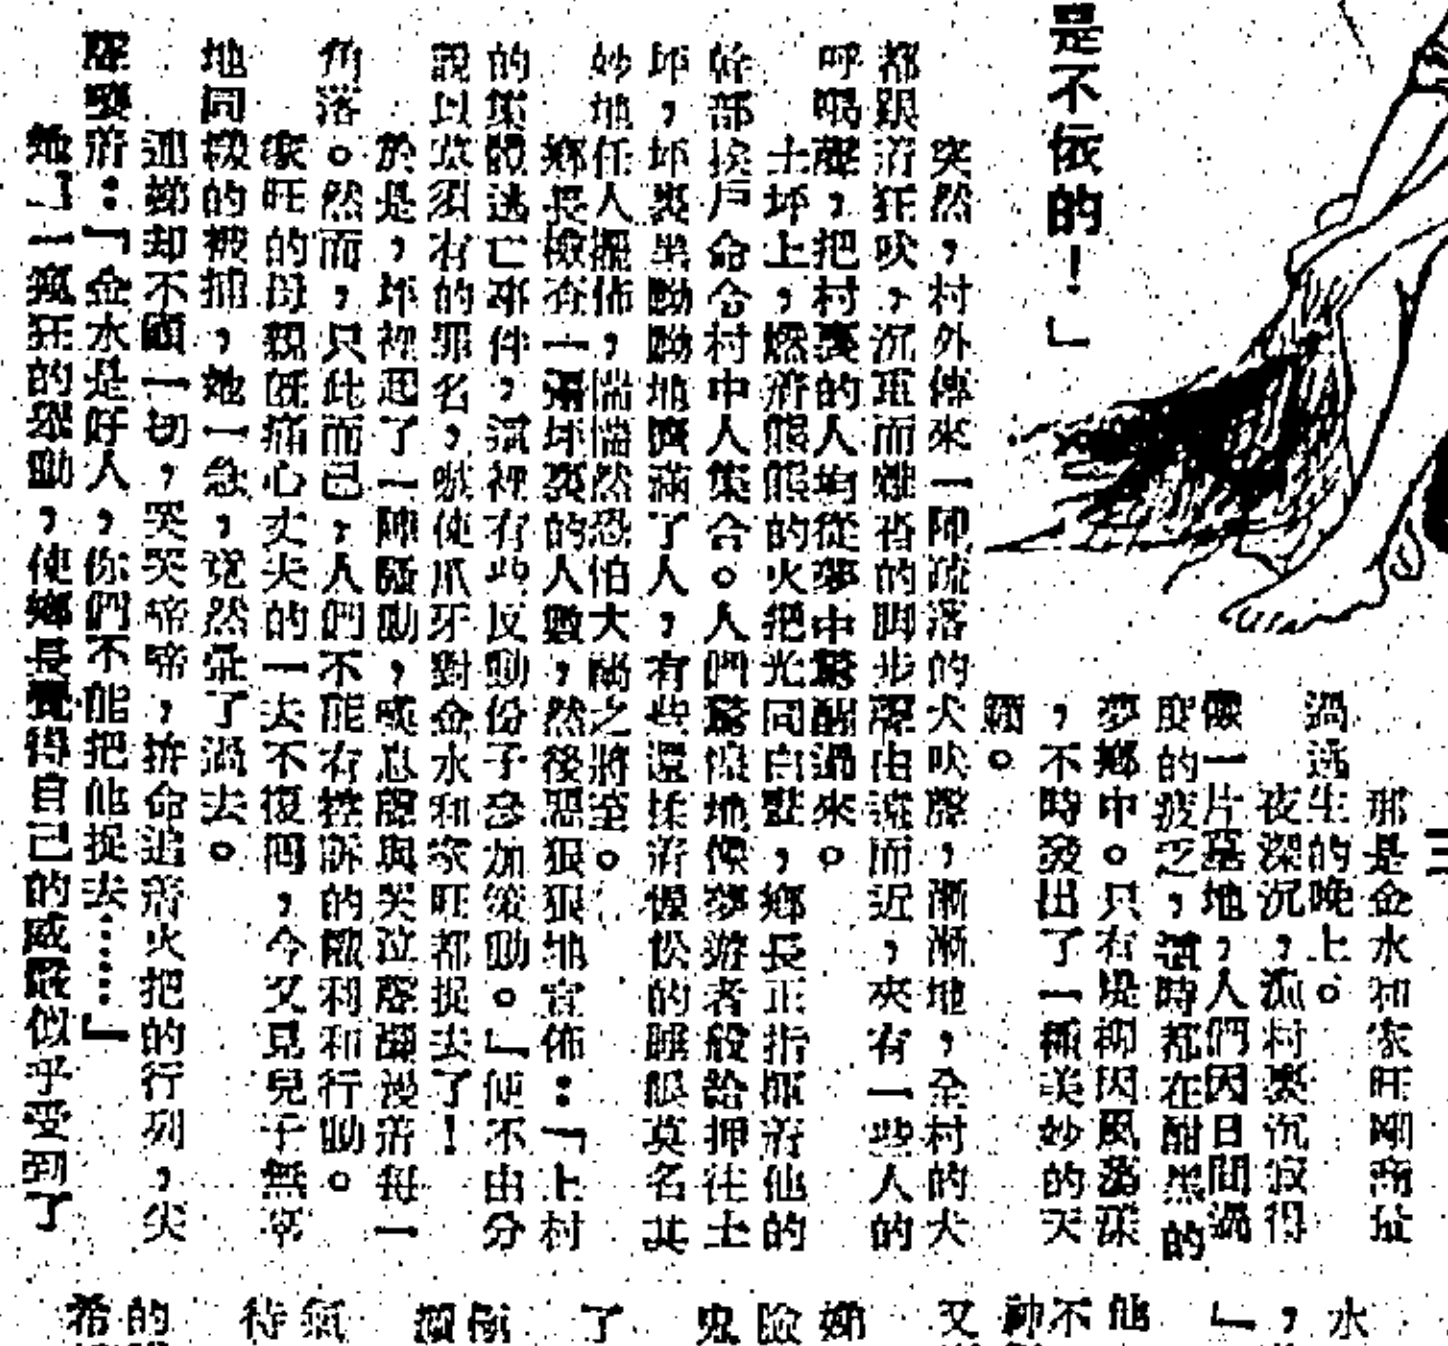 是不依的！」
三
那是金水和家旺剛商扯
過逃生的晚上。
夜深沉，漁村裏沉寂得
像一片墓地，人們因日間過
度的疲乏，這時都在酣黑的
夢鄉中。只有堤柳因風蕩漾
，不時發出了一種美妙的天
籟。
突然，村外傳來一陣疏落的犬吠聲，漸漸地，全村的犬
都跟着狂吠，沉重而雜沓的脚步聲由遠而近，夾有一些人的
呼喝聲，把村裏的人均從夢中驚醒過來。
土坪上，燃着熊熊的火把光同白晝，鄉長正指揮着他的
幹部挨戶命令村中人集合。人們驚惶地像夢遊者般給押往土
坪，坪裏黑黝黝地擠滿了人，有些還揉着惺忪的睡眼莫名其
妙地任人擺佈，惴惴然恐怕大禍之將至。
鄉長檢查一彌坪裏的人數，然後惡狠狠地宣佈：「上村
的集體逃亡事件，這裡有些反動份子參加策動。」便不由分
說以莫須有的罪名，嗾使爪牙對金水和家旺都捉去了！
於是，坪裡起了一陣騷動，嘆息聲與哭泣聲瀰漫着每一
角落。然而，只此而已，人們不能有控訴的權利和行動。
家旺的母親旣痛心丈夫的一去不復囘，今又見兒子無辜
地同樣的被捕，她一急，竟然暈了過去。
連娣却不顧一切，哭哭啼啼，拚命追着火把的行列，尖
聲嚷着：「金水是好人，你們不能把他捉去……」
她一瘋狂的舉動，使鄉長覺得自己的威嚴似乎受到了
水
，
」
他
不
神
又
娣
險
鬼
了
氣
待
的
希